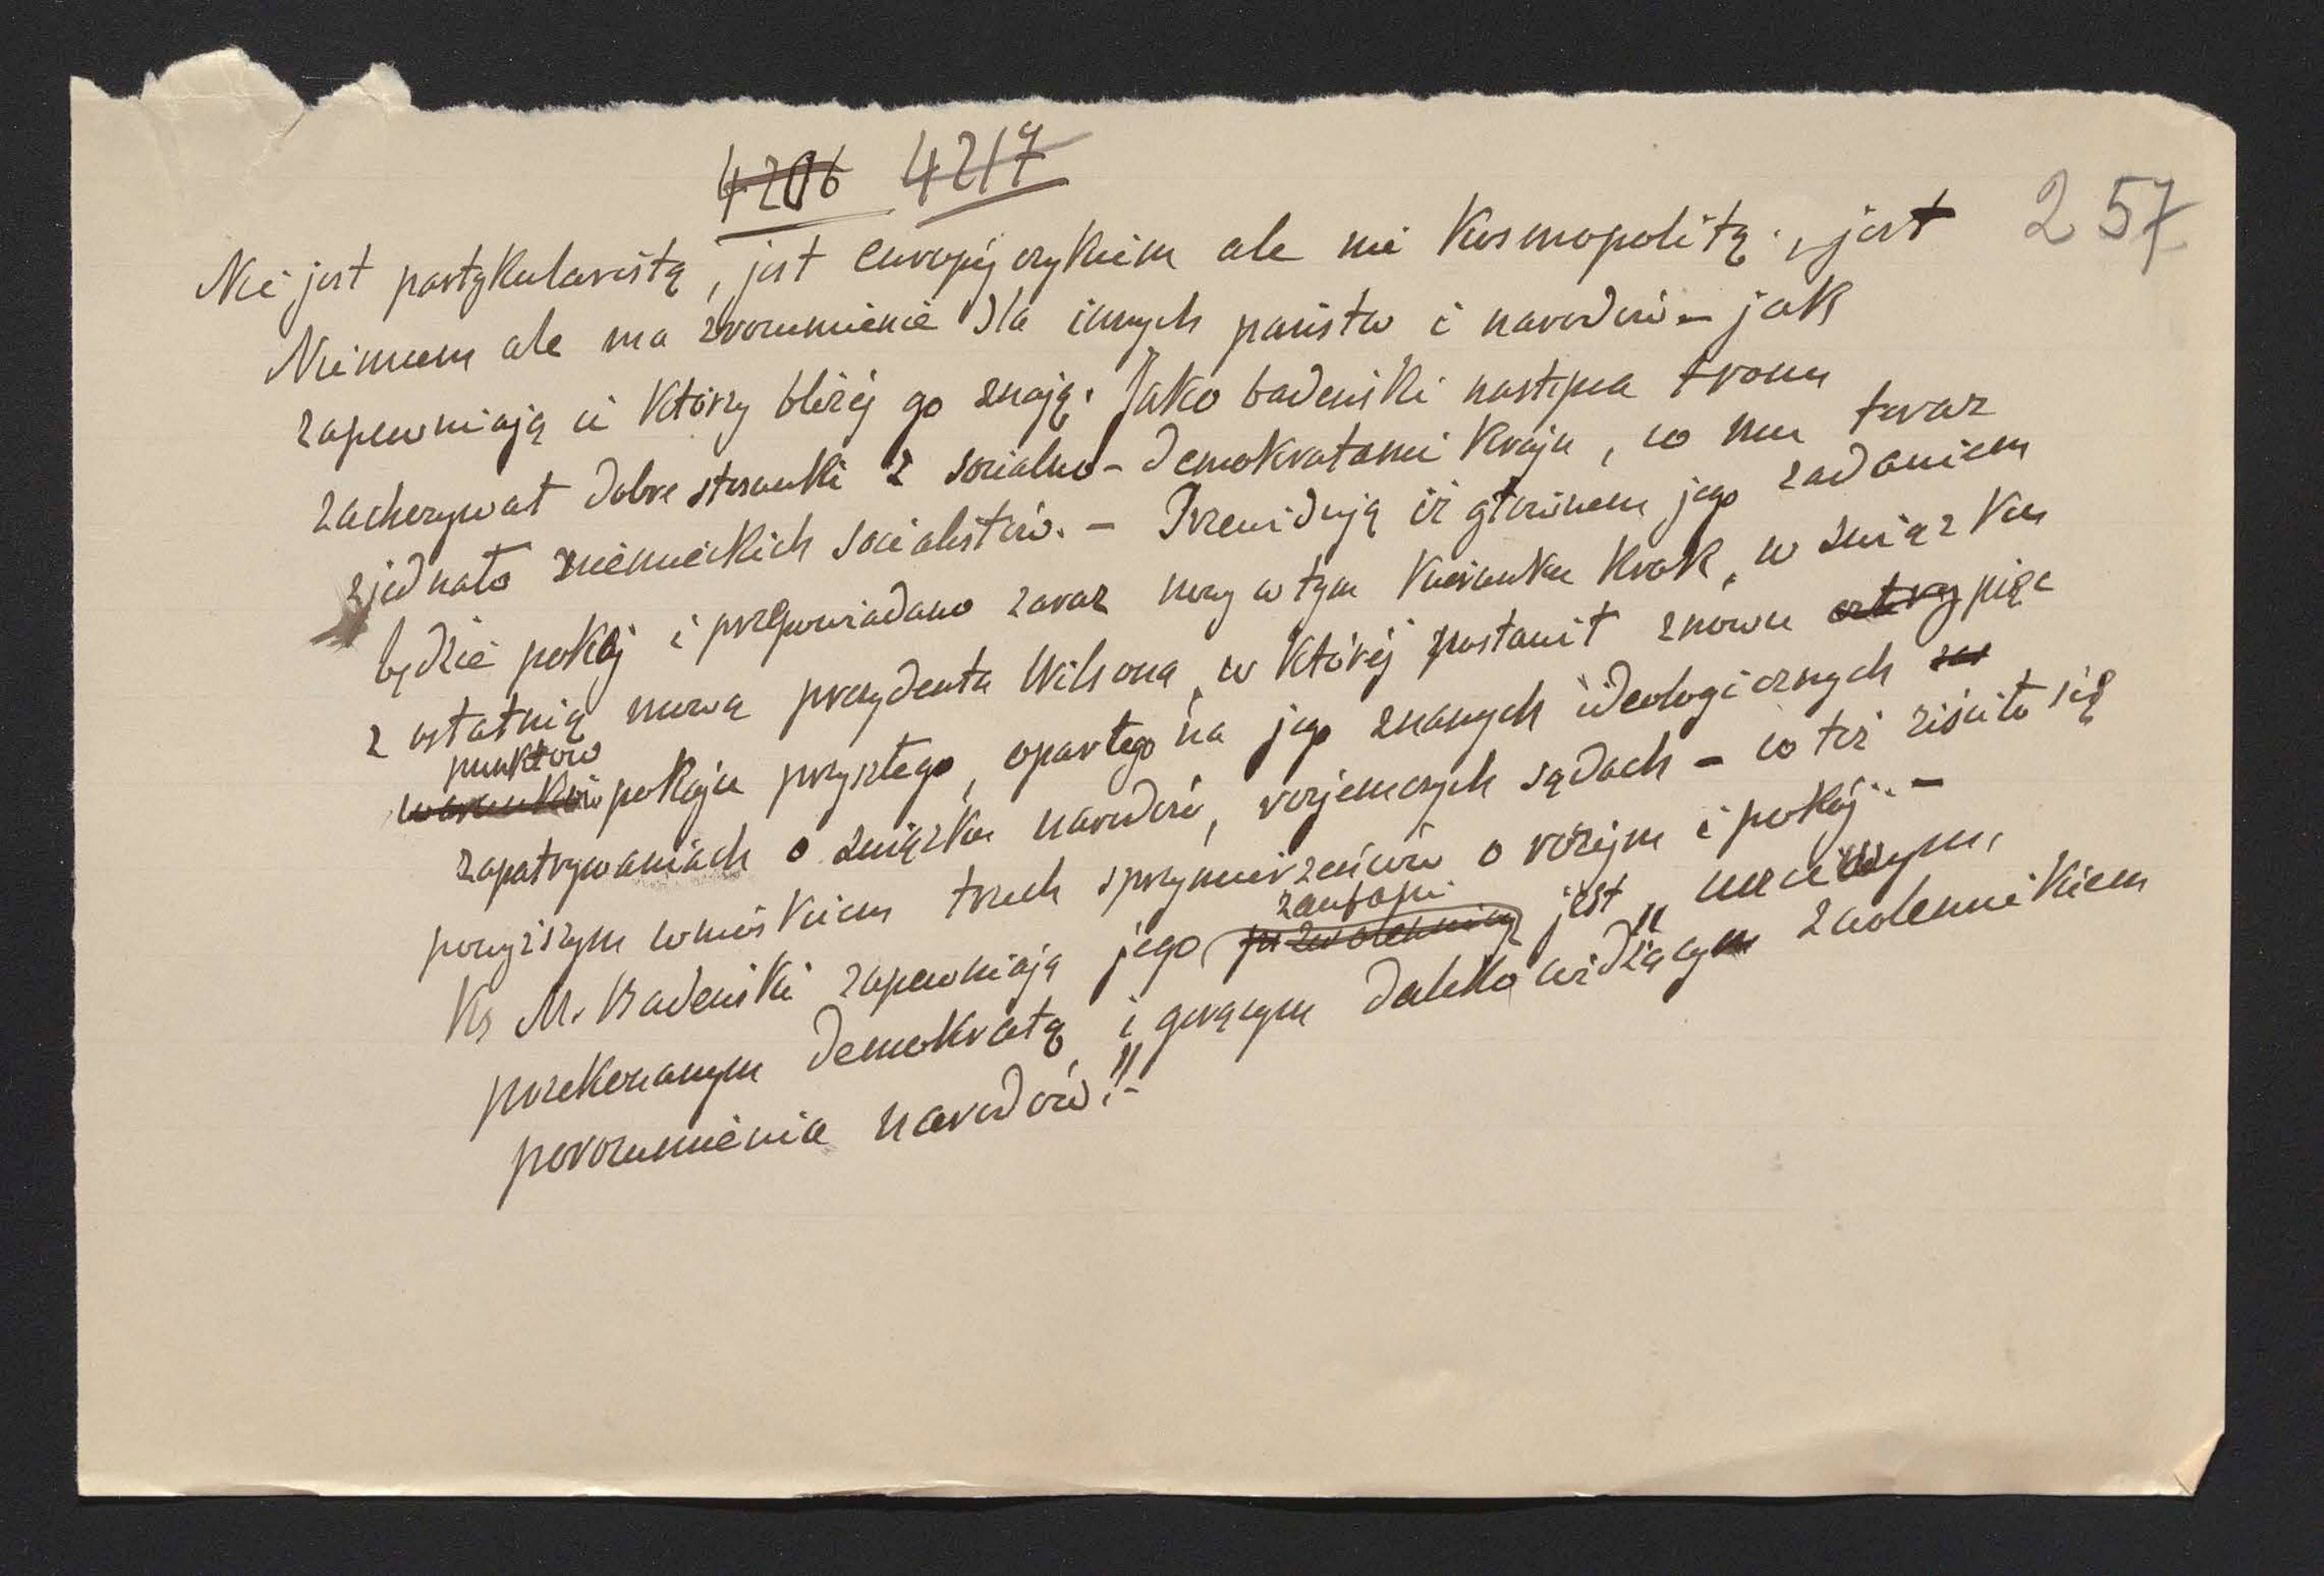 4206 4217
257
Nie jest partykularistą, jest europejczykiem ale nie kosmopolitą, jest
Niemcem ale ma zrozumienie dla innych państw i narodów – jak
zapewniają ci którzy bliżej go znają. Jako badeński następca tronu
zachowywał dobre stosunki z socialno-demokratami kraju, co mu teraz
zjednało niemieckich socialistów. – Przewidują iż głównem jego zadaniem
będzie pokój i przepowiadano zaraz nowy w tym kierunku krok, w związku
z ostatnią mową prezydenta Wilsona, w której postawił znowu cztery pięć
punktów
warunków pokoju przyszłego, opartego na jego znanych ideologicznych
zapatrywaniach o związku narodów, rozjemczych sądach – co też ziściło się
powyższym wnioskiem trzech sprzymierzeńców o rozejm i pokój. –
zaufani
Ks M. Badeński zapewniają jego jest „uczciwym,
przekonanym demokratą i gorącym daleko widzącym zwolennikiem
porozumienia narodów." –